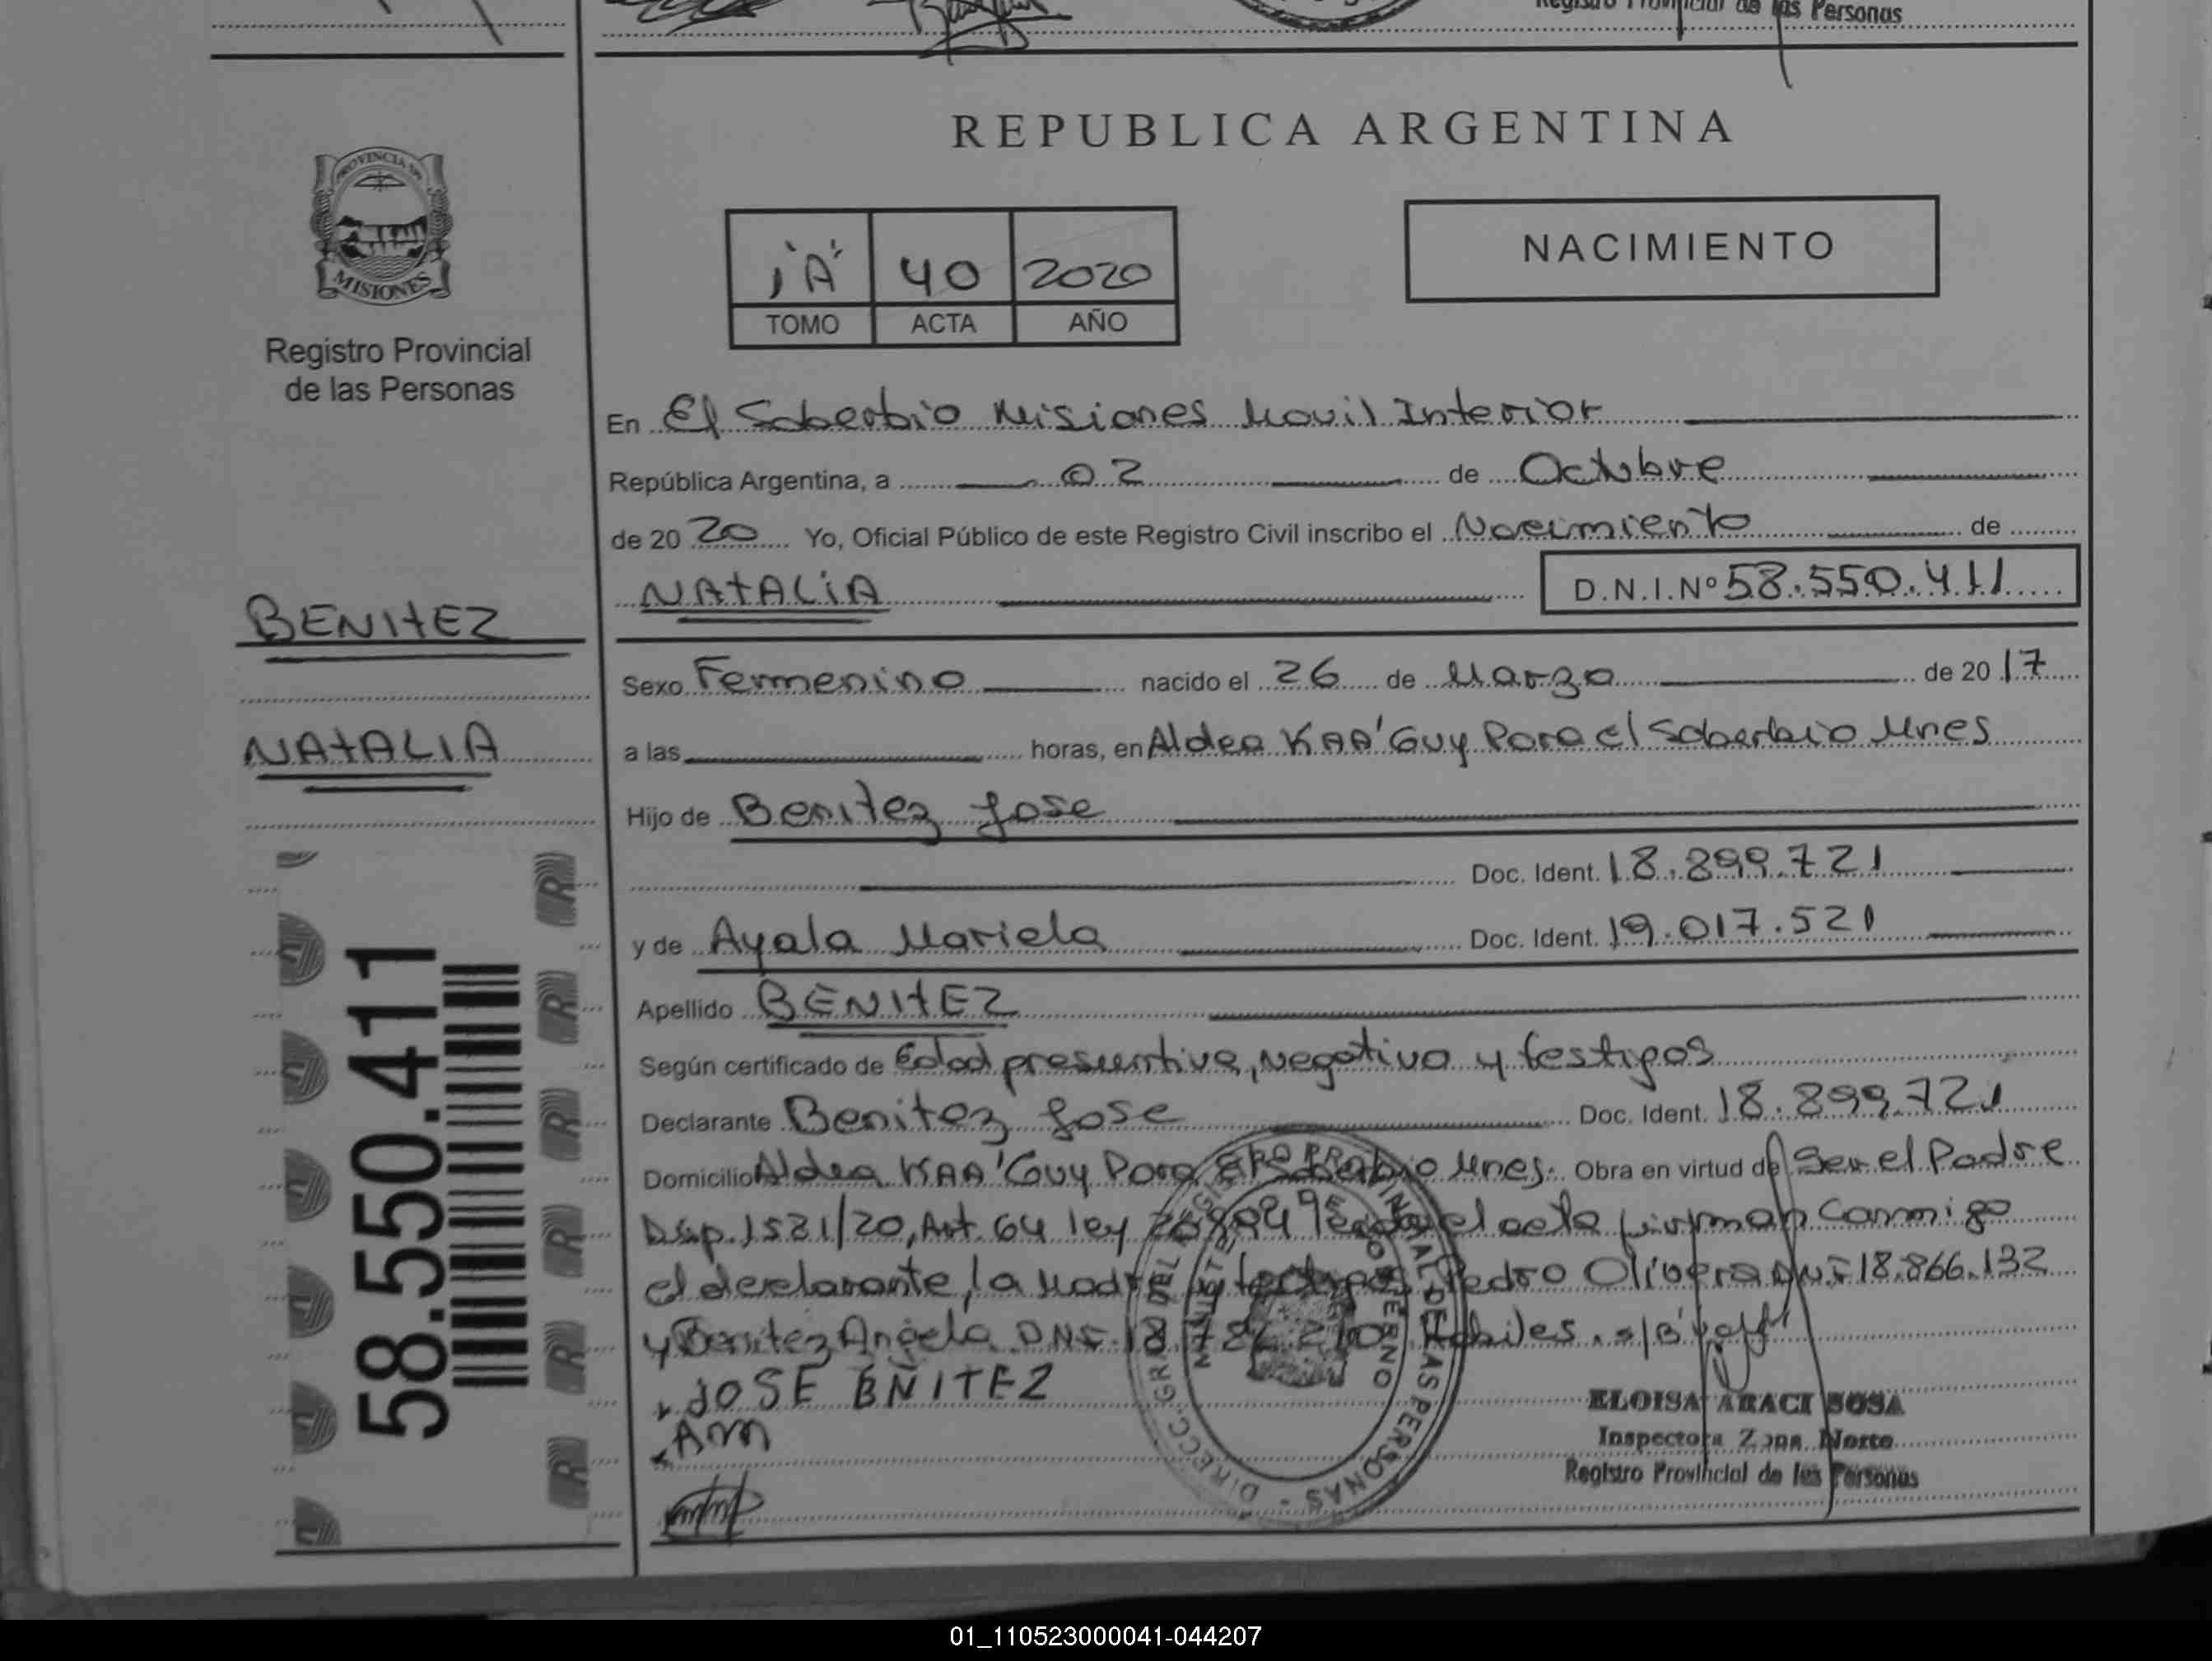 Registro Provincial de las Personas
REPUBLICA ARGENTINA
PROVINCIA DE
MISIONES
Registro Provincial
de las Personas
"A" 40 2020
TOMO ACTA AÑO
NACIMIENTO
En El Soberbio Misiones Movil Interior
República Argentina, a 02 de Octubre
de 2020 Yo, Oficial Público de este Registro Civil inscribo el Nacimiento de
NATALIA D.N.I.Nº 58.550.411
BENITEZ
NATALIA
Sexo Femenino nacido el 26 de Marzo de 2017
a las horas, en Aldea KAA'Guy Pora el Soberbio Mnes
Hijo de Benitez Jose
Doc. Ident. 18.899.721
y de Ayala Mariela Doc. Ident. 19.017.521
Apellido BENITEZ
Según certificado de Edad presuntiva, negativo y testigos
Declarante Benitez Jose Doc. Ident. 18.899.721
Domicilio Aldea KAA'Guy Pora El Soberbio Mnes. Obra en virtud de Ser el Padre
Disp. 1581/20, Art. 64 ley Leida el acta firman Conmigo
el declarante, la Madre y testigos Pedro Olivera DNI 18.866.132
y Benitez Angela DNI Habiles.
JOSE BÑITEZ
AM
58.550.411
DIRECC. GRAL DEL REGISTRO PROVINCIAL DE LAS PERSONAS
MINISTERIO DE GOBIERNO
ELOISA ARACI SOSA
Inspectora Zona Norte
Registro Provincial de las Personas
01_110523000041-044207